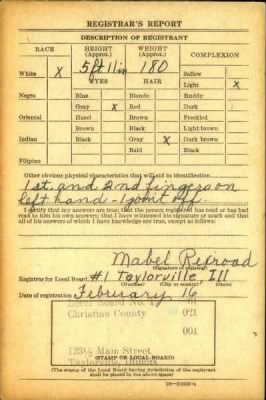 REGISTRAR'S REPORT
DESCRIPTION OF REGISTRANT
RACE HEIGHT (Approx.) WEIGHT (Approx.) COMPLEXION
White X 5 ft 11 in 180 Sallow
EYES HAIR Light X
Negro Blue Blonde Ruddy
Gray X Red Dark
Oriental Hazel Brown Freckled
Brown Black Light brown
Indian Black Gray X Dark brown
Bald Black
Filipino
Other obvious physical characteristics that will aid in identification
1st and 2nd fingers on
left hand - 1 joint off.
I certify that my answers are true; that the person registered has read or has had
read to him his own answers; that I have witnessed his signature or mark and that
all of his answers of which I have knowledge are true, except as follows:
Mabel
(Signature of registrar)
Registrar for Local Board #1 Taylorville, Ill
(Number) (City or county) (State)
Date of registration February 16
Local Board No. 1
Christian County 021
001
Main Street
Taylorville, Illinois
(STAMP OF LOCAL BOARD)
(The stamp of the Local Board having jurisdiction of the registrant
shall be placed in the above space)